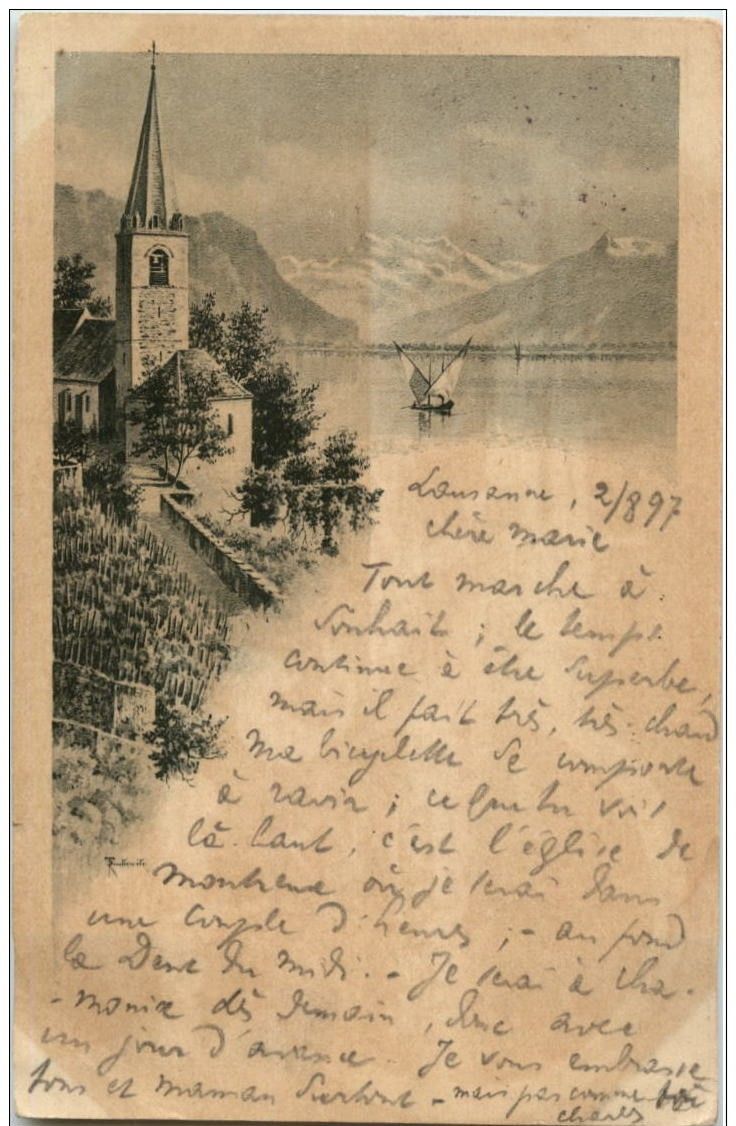 Lausanne, 2/897
chère marie
Tout marche à
souhait ; le temps
continue à être superbe,
mais il fait très, très chaud
ma bicyclette se comporte
à ravir ; ce que tu vois
là-haut, c'est l'église de
montreux où je serai dans
une couple d'heures ; - au fond
la Dent du midi. - Je serai à cha-
-monix dès demain, donc avec
un jour d'avance. Je vous embrasse
tous et maman surtout - mais pas comme toi
charles